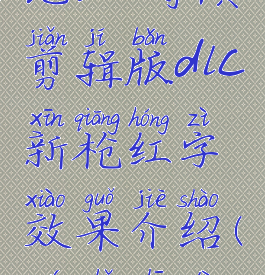 jiǎn jí bǎn
剪辑版dlc
xīn qiāng hóng zì
新枪红字
xiào guǒ jiè shào
效果介绍(